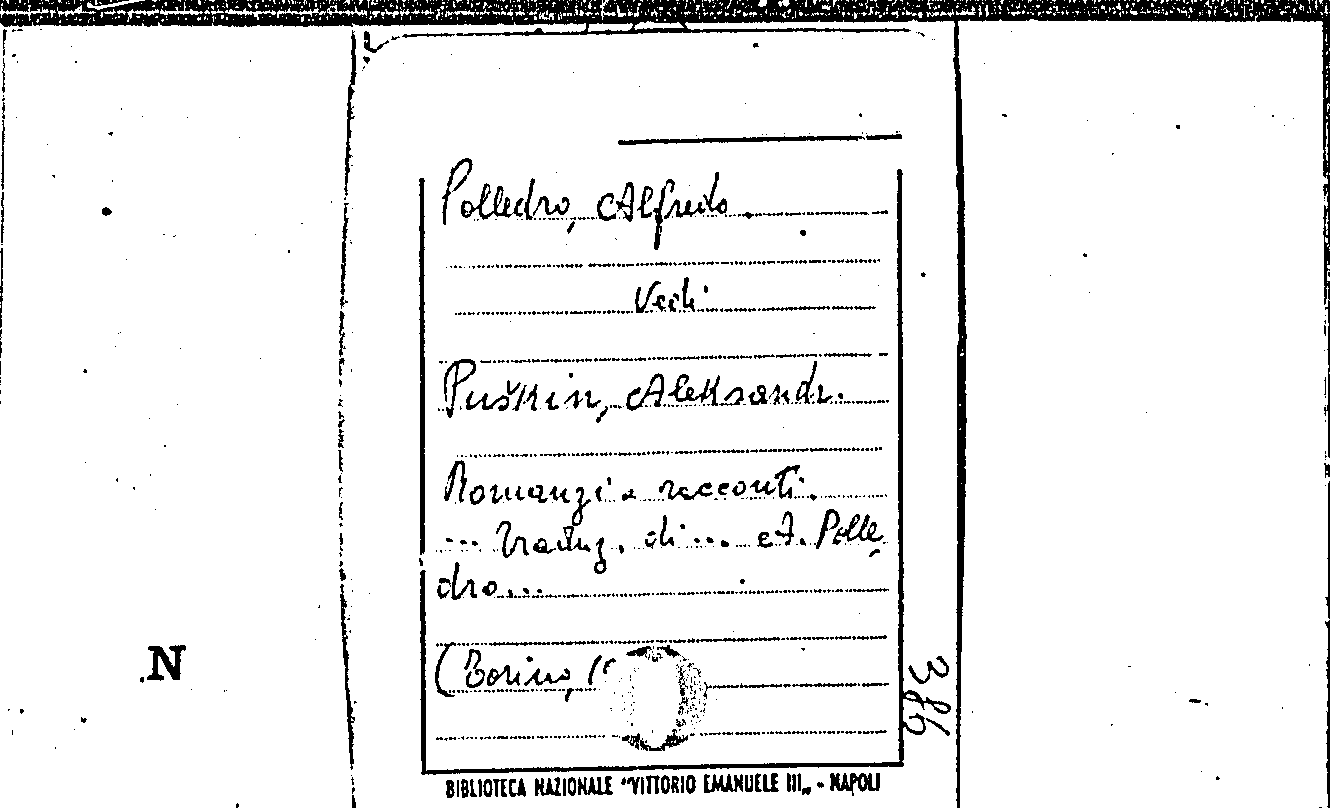 Polledro, Alfredo.
Vedi
Puškin, Aleksandr.
Romanzi e racconti.
... Traduz. di... A. Polle
dro...
(Torino, 1
386
N
BIBLIOTECA NAZIONALE "VITTORIO EMANUELE III„ - NAPOLI